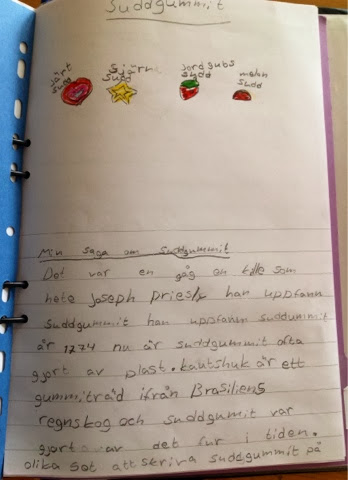 Suddgummit
järt sudd
sjärn sudd
jordgubs sudd
melon sudd
Min saga om Suddgummit
Det var en gåg en kille som
hete Joseph Priesly han uppfann
suddgummit han uppfann suddumit
år 1774 nu är suddgummit ofta
gjort av plast. kautshuk är ett
gummiträd ifrån Brasiliens
regnskog och suddgumit var
gjort av det fur i tiden.
olika set att skriva suddgummit på